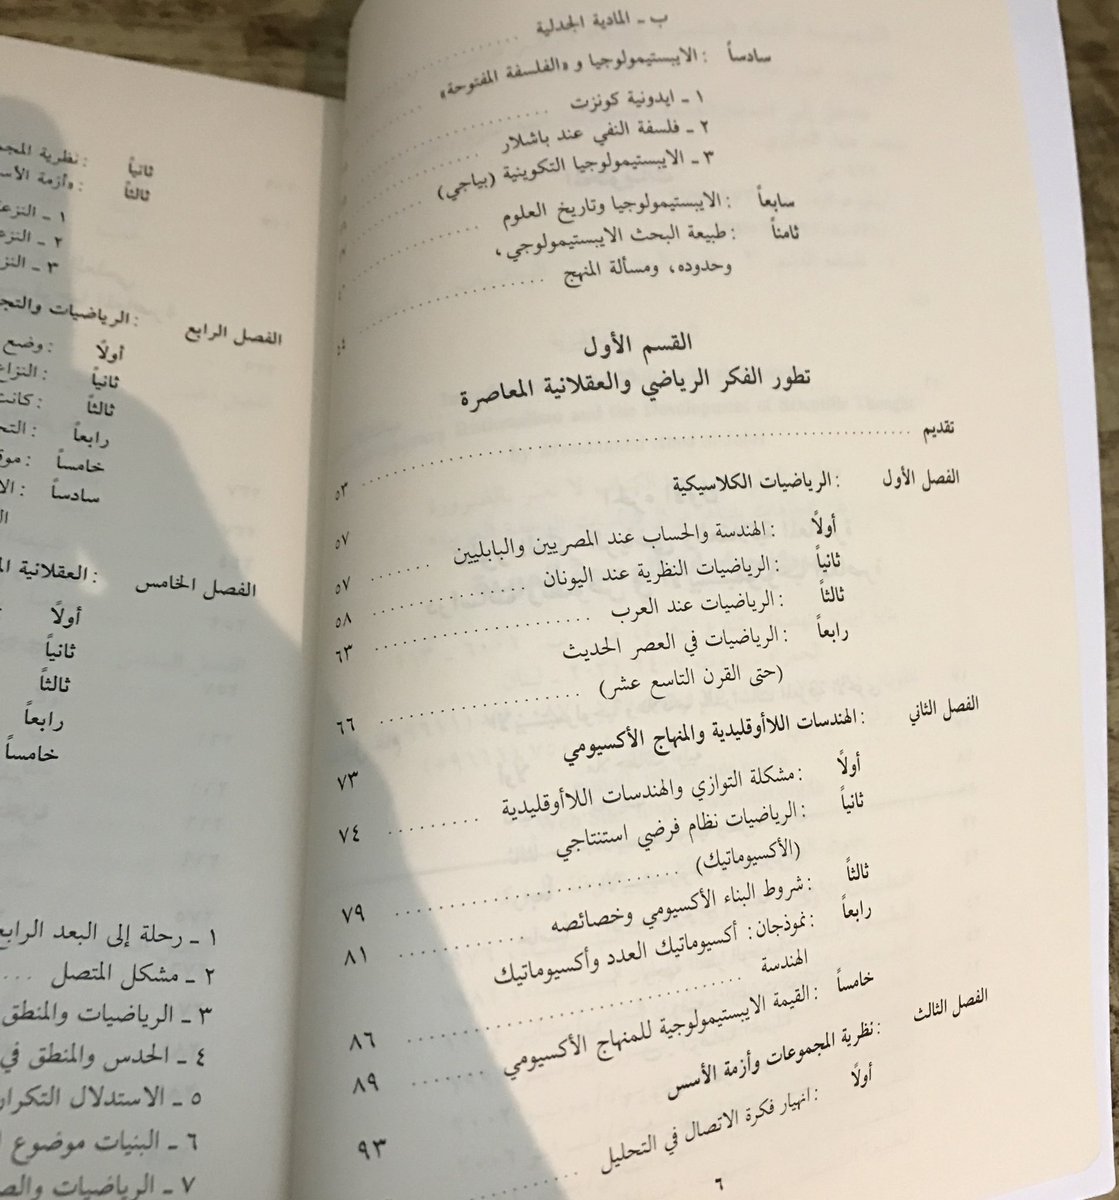 ب ـ المادية الجدلية
سادساً : الايبستيمولوجيا و «الفلسفة المفتوحة»
١ ـ ايدونية كونزت
٢ ـ فلسفة النفي عند باشلار
٣ ـ الايبستيمولوجيا التكوينية (بياجي)
سابعاً : الايبستيمولوجيا وتاريخ العلوم
ثامناً : طبيعة البحث الايبستيمولوجي،
وحدوده، ومسألة المنهج
القسم الأول
تطور الفكر الرياضي والعقلانية المعاصرة
تقديم ٥٣
الفصل الأول : الرياضيات الكلاسيكية ٥٧
أولاً : الهندسة والحساب عند المصريين والبابليين ٥٧
ثانياً : الرياضيات النظرية عند اليونان ٥٨
ثالثاً : الرياضيات عند العرب ٦٣
رابعاً : الرياضيات في العصر الحديث
(حتى القرن التاسع عشر) ٦٦
الفصل الثاني : الهندسات اللاأوقليدية والمنهاج الأكسيومي ٧٣
أولاً : مشكلة التوازي والهندسات اللاأوقليدية ٧٤
ثانياً : الرياضيات نظام فرضي استنتاجي
(الأكسيوماتيك) ٧٩
ثالثاً : شروط البناء الأكسيومي وخصائصه ٨١
رابعاً : نموذجان: أكسيوماتيك العدد وأكسيوماتيك
الهندسة ٨٦
خامساً : القيمة الايبستيمولوجية للمنهاج الأكسيومي ٨٩
الفصل الثالث : نظرية المجموعات وأزمة الأسس ٩٣
أولاً : انهيار فكرة الاتصال في التحليل
٦
ثانياً : نظرية
ثالثاً : «أزمة
١ ـ
٢ ـ
٣ ـ
الفصل الرابع : الرياضيات
أولاً : وضع
ثانياً :
ثالثاً : كانت
رابعاً :
خامساً :
سادساً :
الفصل الخامس : العقلانية
أولاً
ثانياً
ثالثاً
رابعاً
خامساً
١ ـ رحلة إلى البعد الرابع
٢ ـ مشكل المتصل
٣ ـ الرياضيات والمنطق
٤ ـ الحدس والمنطق في
٥ ـ الاستدلال
٦ ـ البنيات موضوع
٧ ـ الرياضيات